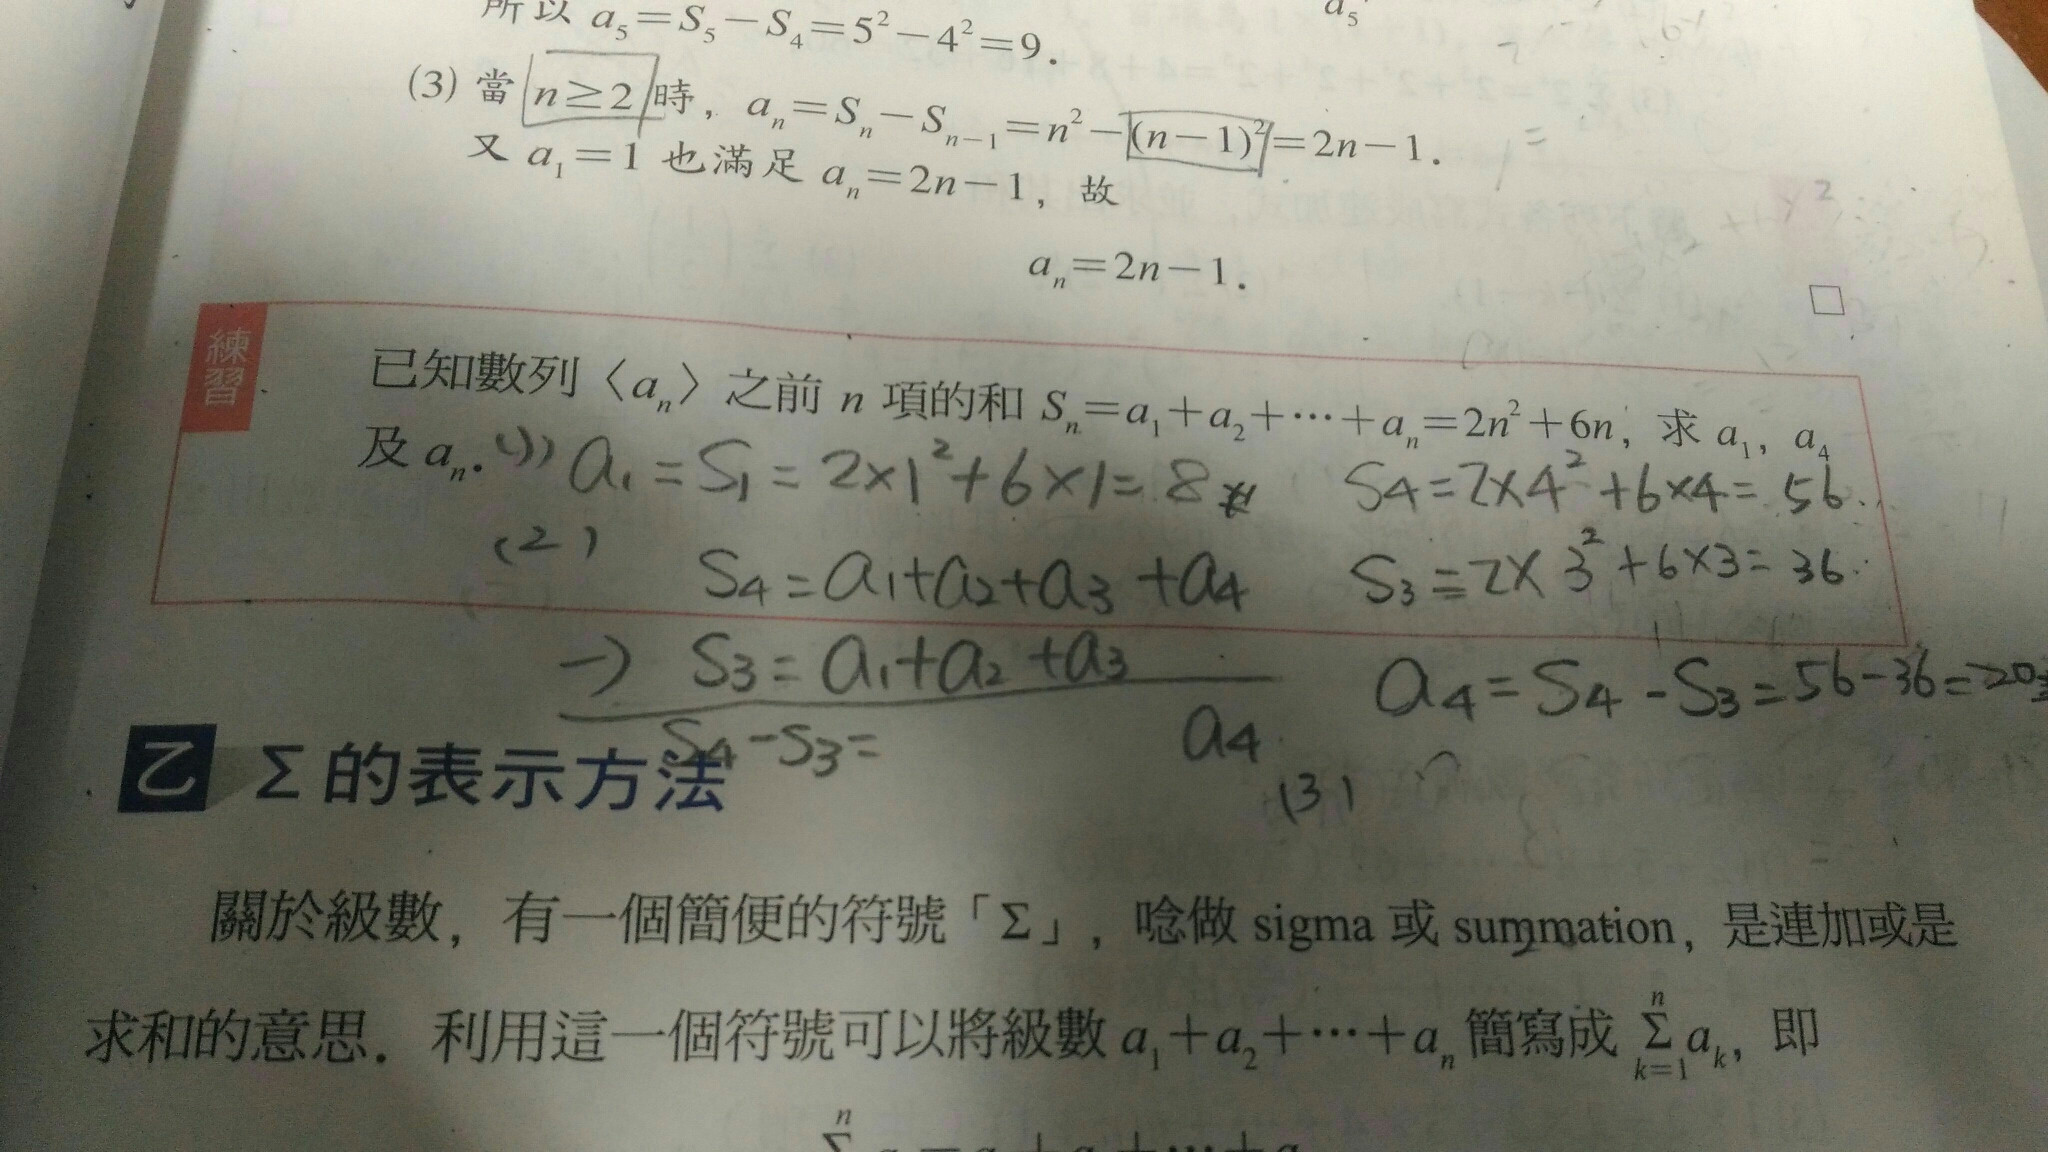 所以 a₅=S₅−S₄=5²−4²=9.
a₅
(3) 當 n≥2 時, aₙ=Sₙ−Sₙ₋₁=n²−(n−1)²=2n−1.
又 a₁=1 也滿足 aₙ=2n−1, 故
aₙ=2n−1.
□
練習
已知數列〈aₙ〉之前 n 項的和 Sₙ=a₁+a₂+⋯+aₙ=2n²+6n, 求 a₁, a₄
及 aₙ.
(1) a₁=S₁=2×1²+6×1=8
S₄=2×4²+6×4=56
(2) S₄=a₁+a₂+a₃+a₄
S₃=2×3²+6×3=36
−) S₃=a₁+a₂+a₃
a₄=S₄−S₃=56−36=20
S₄−S₃= a₄
(3)
乙 Σ 的表示方法
關於級數, 有一個簡便的符號「Σ」, 唸做 sigma 或 summation, 是連加或是
求和的意思. 利用這一個符號可以將級數 a₁+a₂+⋯+aₙ 簡寫成 Σₖ₌₁ⁿ aₖ, 即